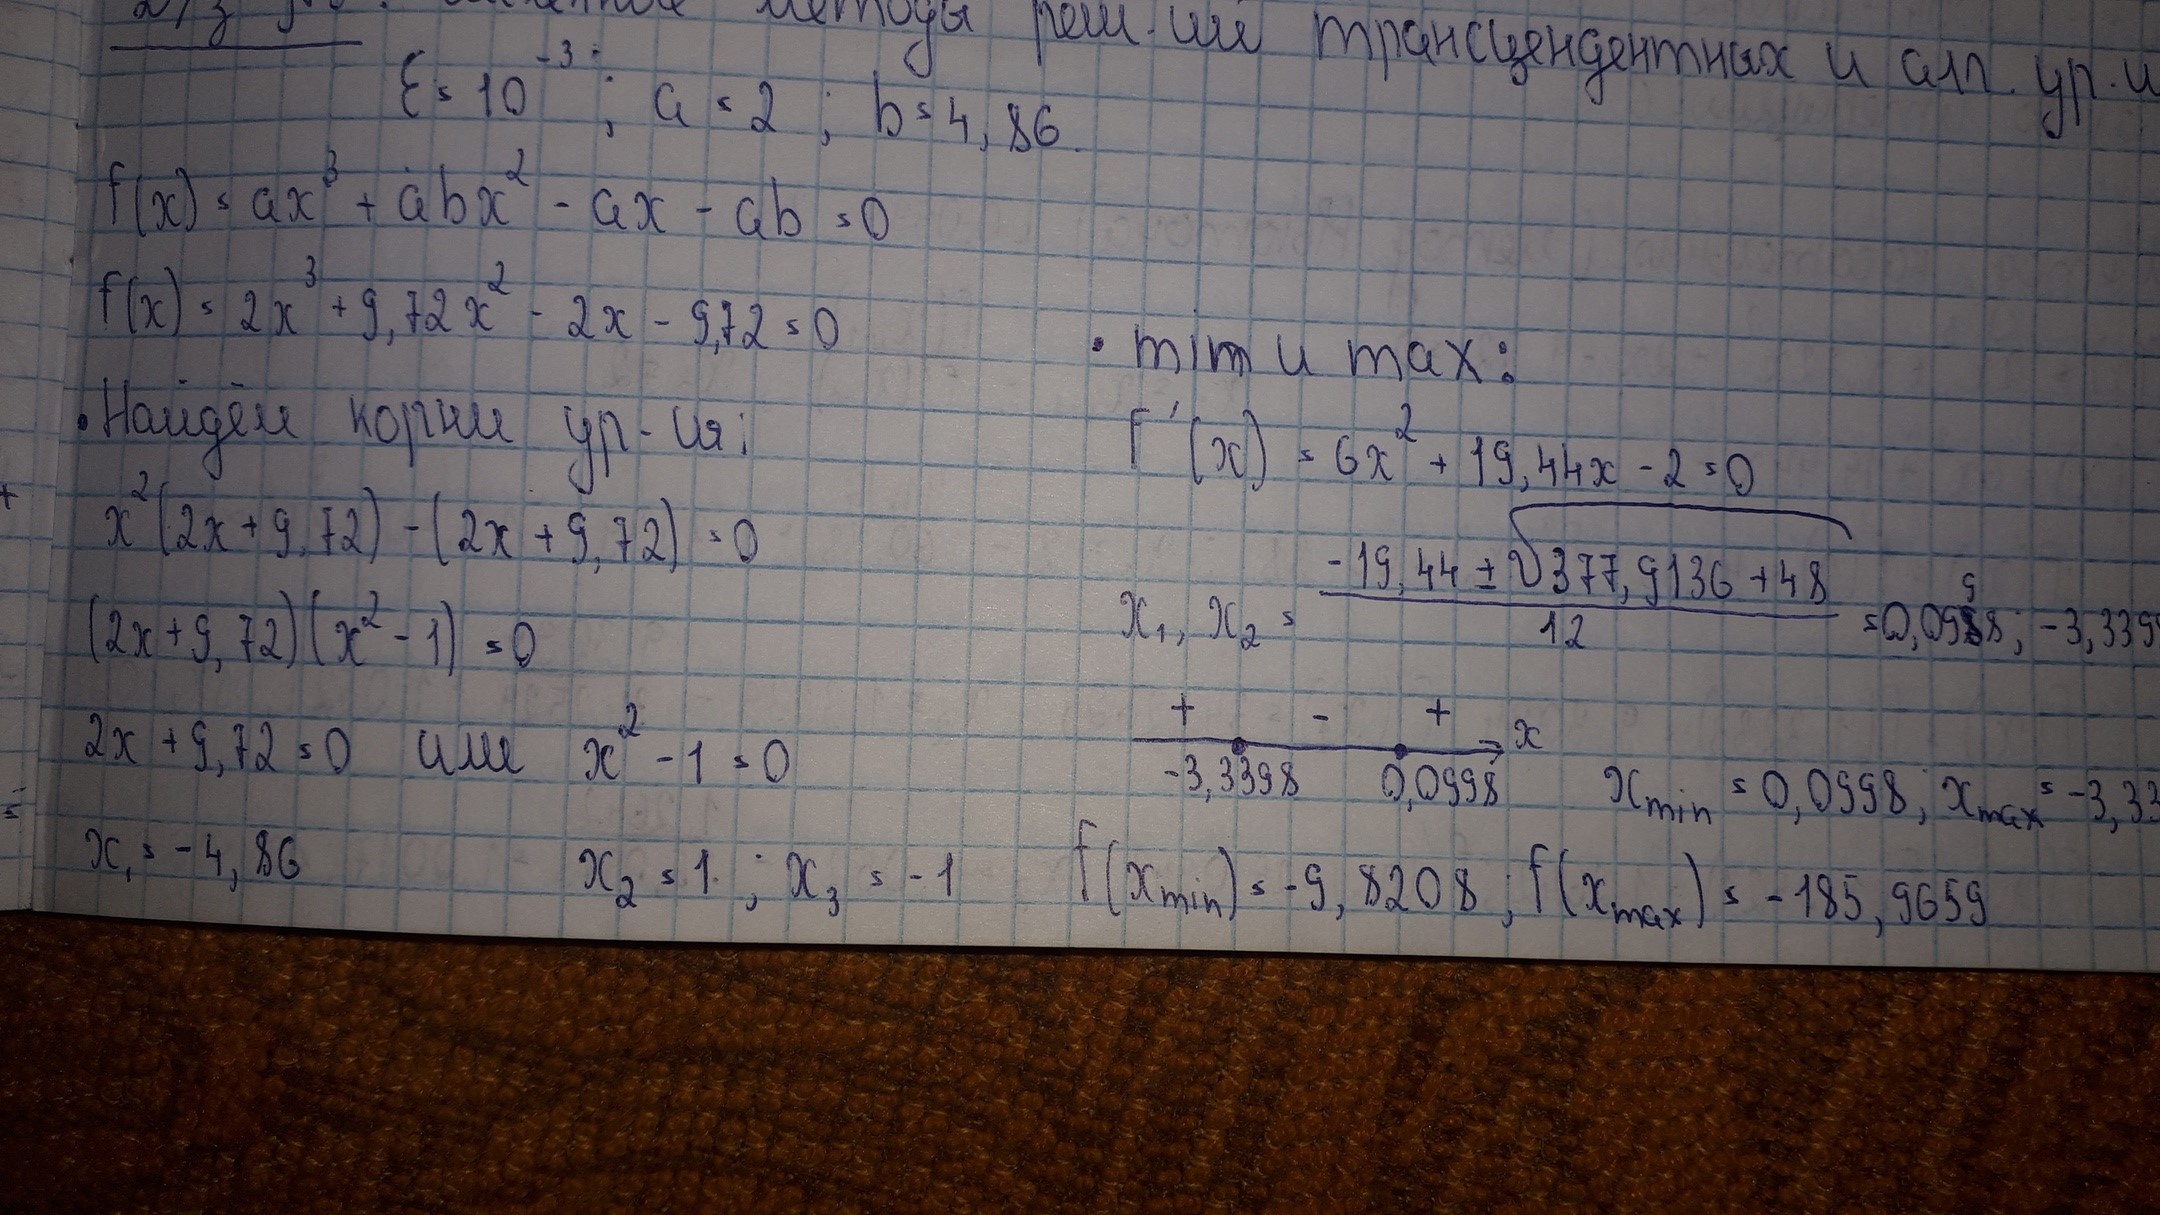 методы реш-ия трансцендентных и алг. ур-и
Ɛ = 10⁻³; a = 2; b = 4,86.
f(x) = ax³ + abx² - ax - ab = 0
f(x) = 2x³ + 9,72x² - 2x - 9,72 = 0
• Найдём корни ур-ия:
x²(2x + 9,72) - (2x + 9,72) = 0
(2x + 9,72)(x² - 1) = 0
2x + 9,72 = 0 или x² - 1 = 0
x₁ = -4,86 x₂ = 1; x₃ = -1
• min и max:
f'(x) = 6x² + 19,44x - 2 = 0
x₁, x₂ = (-19,44 ± √377,9136 + 48) / 12 = 0,0998; -3,339
+ - + x
-3,3398 0,0998
xmin = 0,0998; xmax = -3,33
f(xmin) = -9,8208; f(xmax) = -185,9659
+
=